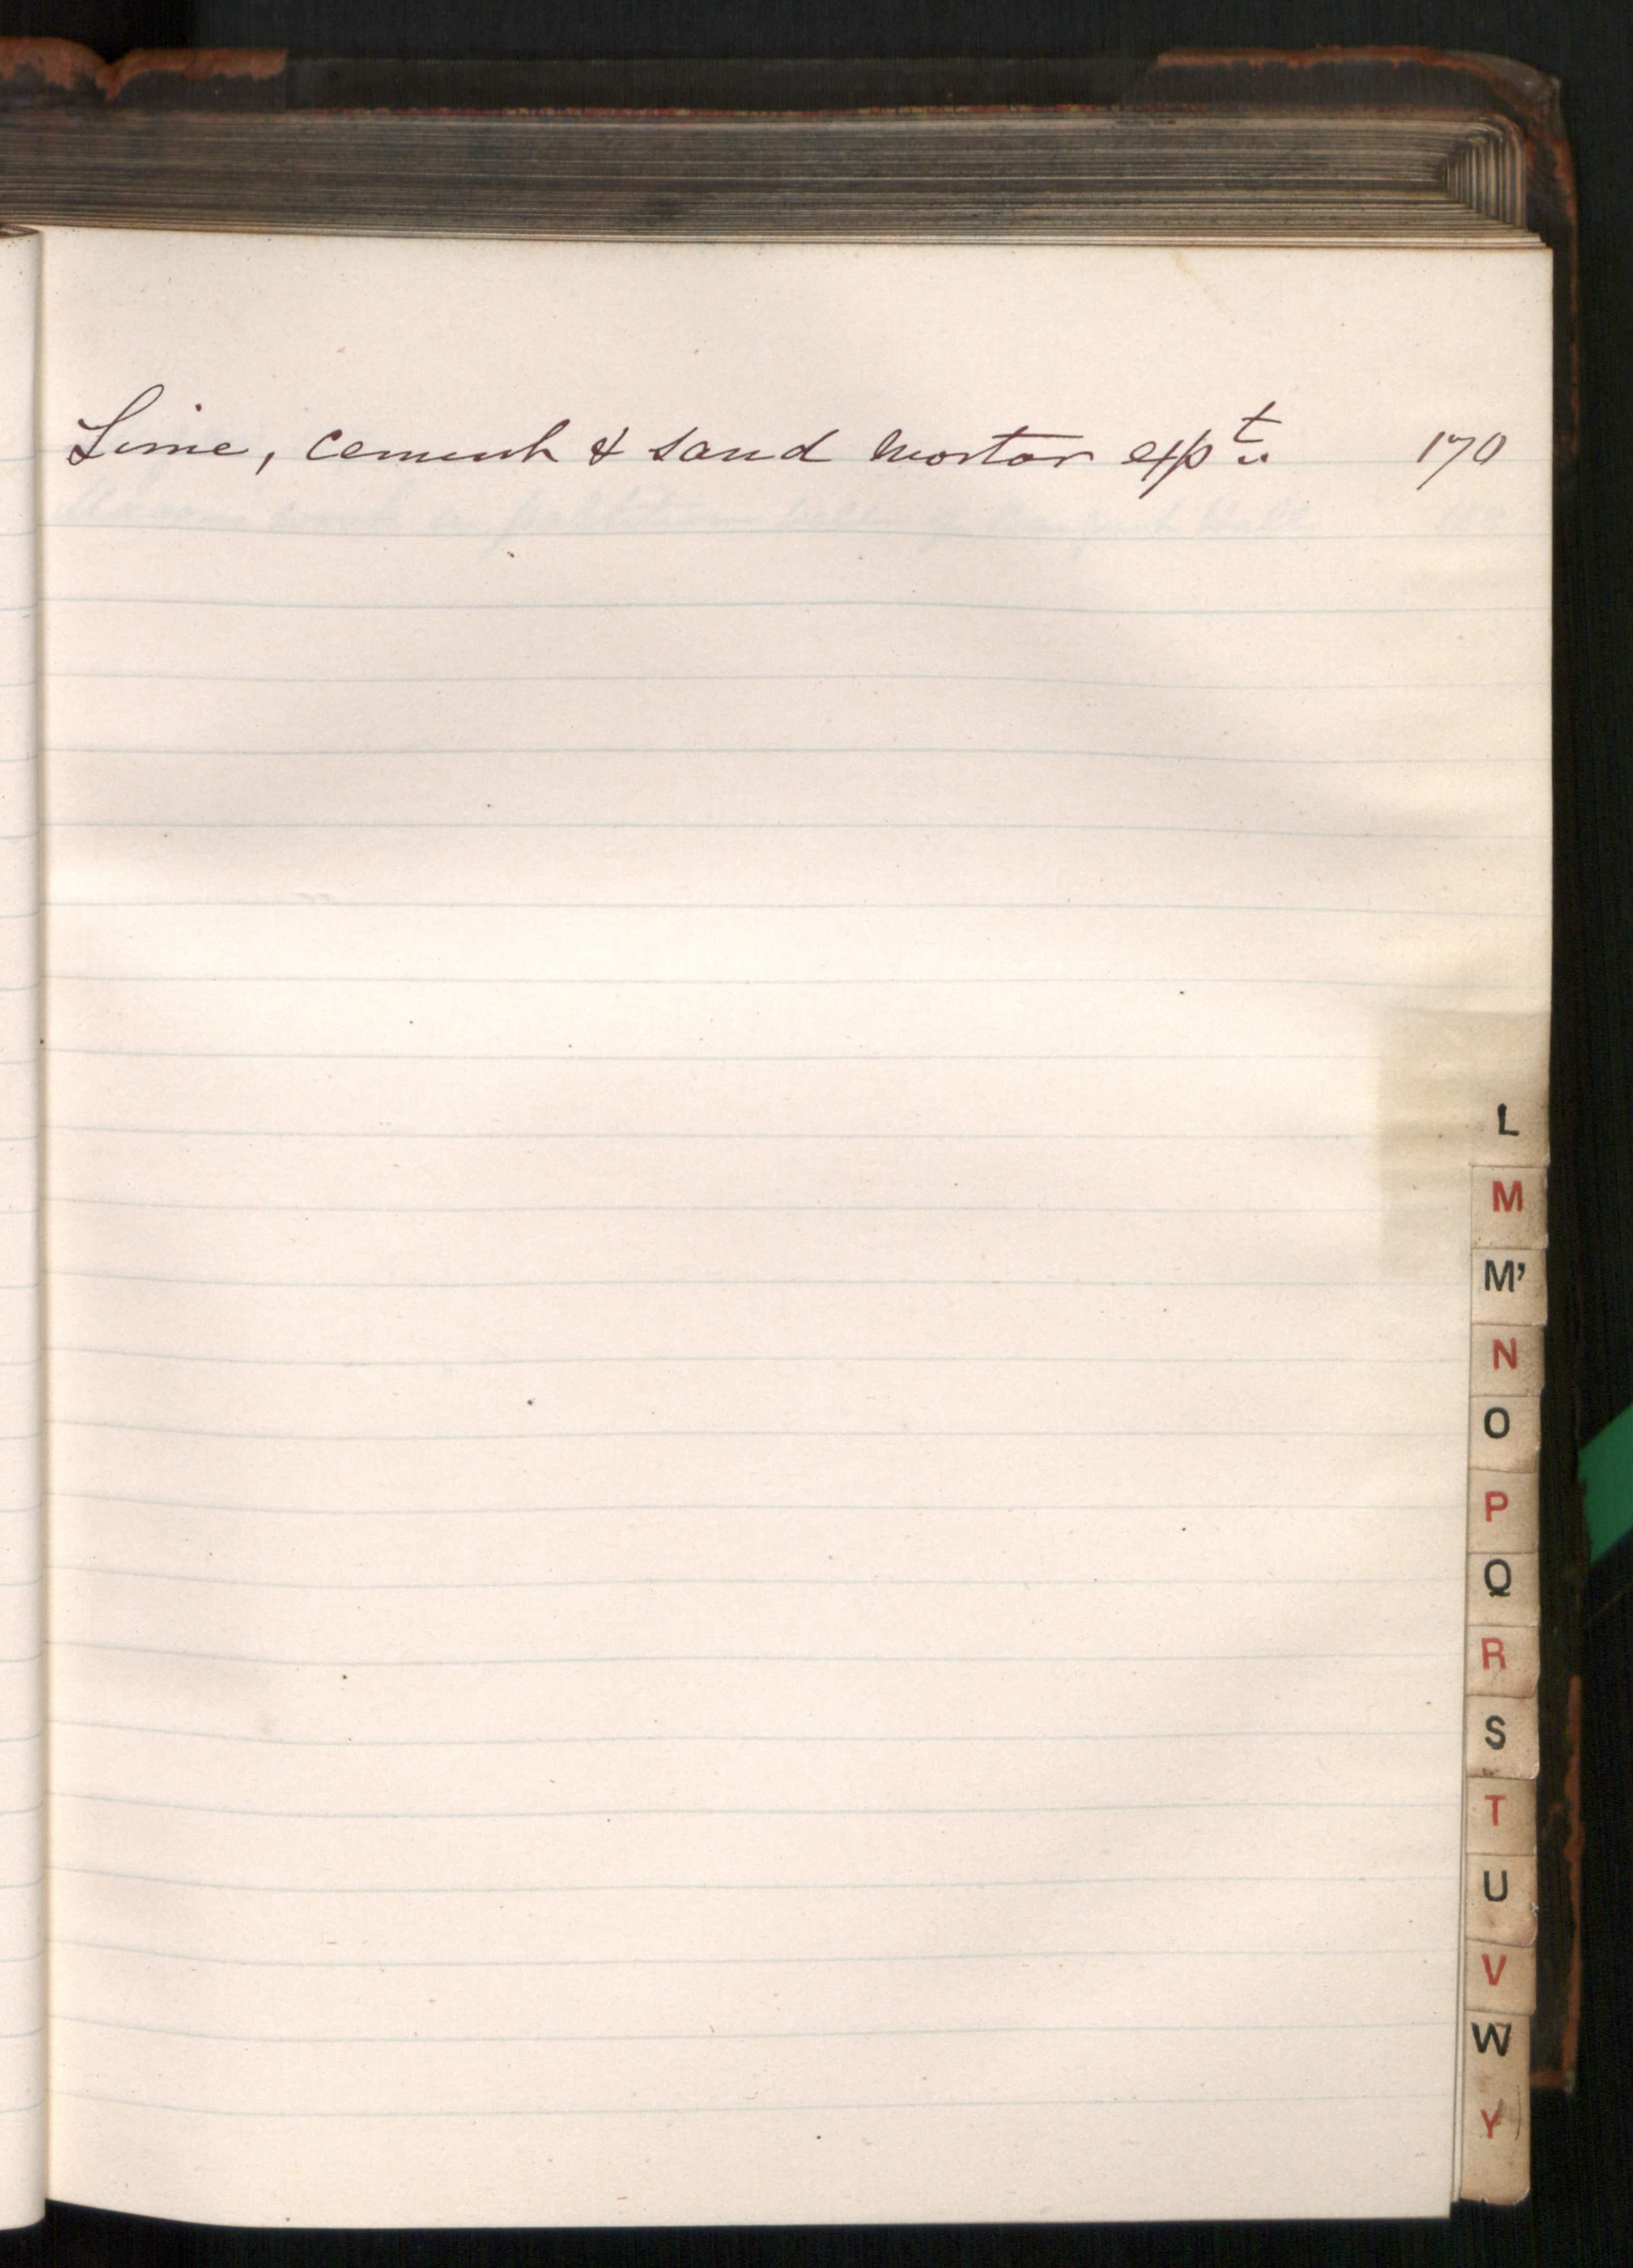 Lime, cement & sand mortar expt. 170
L
M
M'
N
O
P
Q
R
S
T
U
V
W
Y